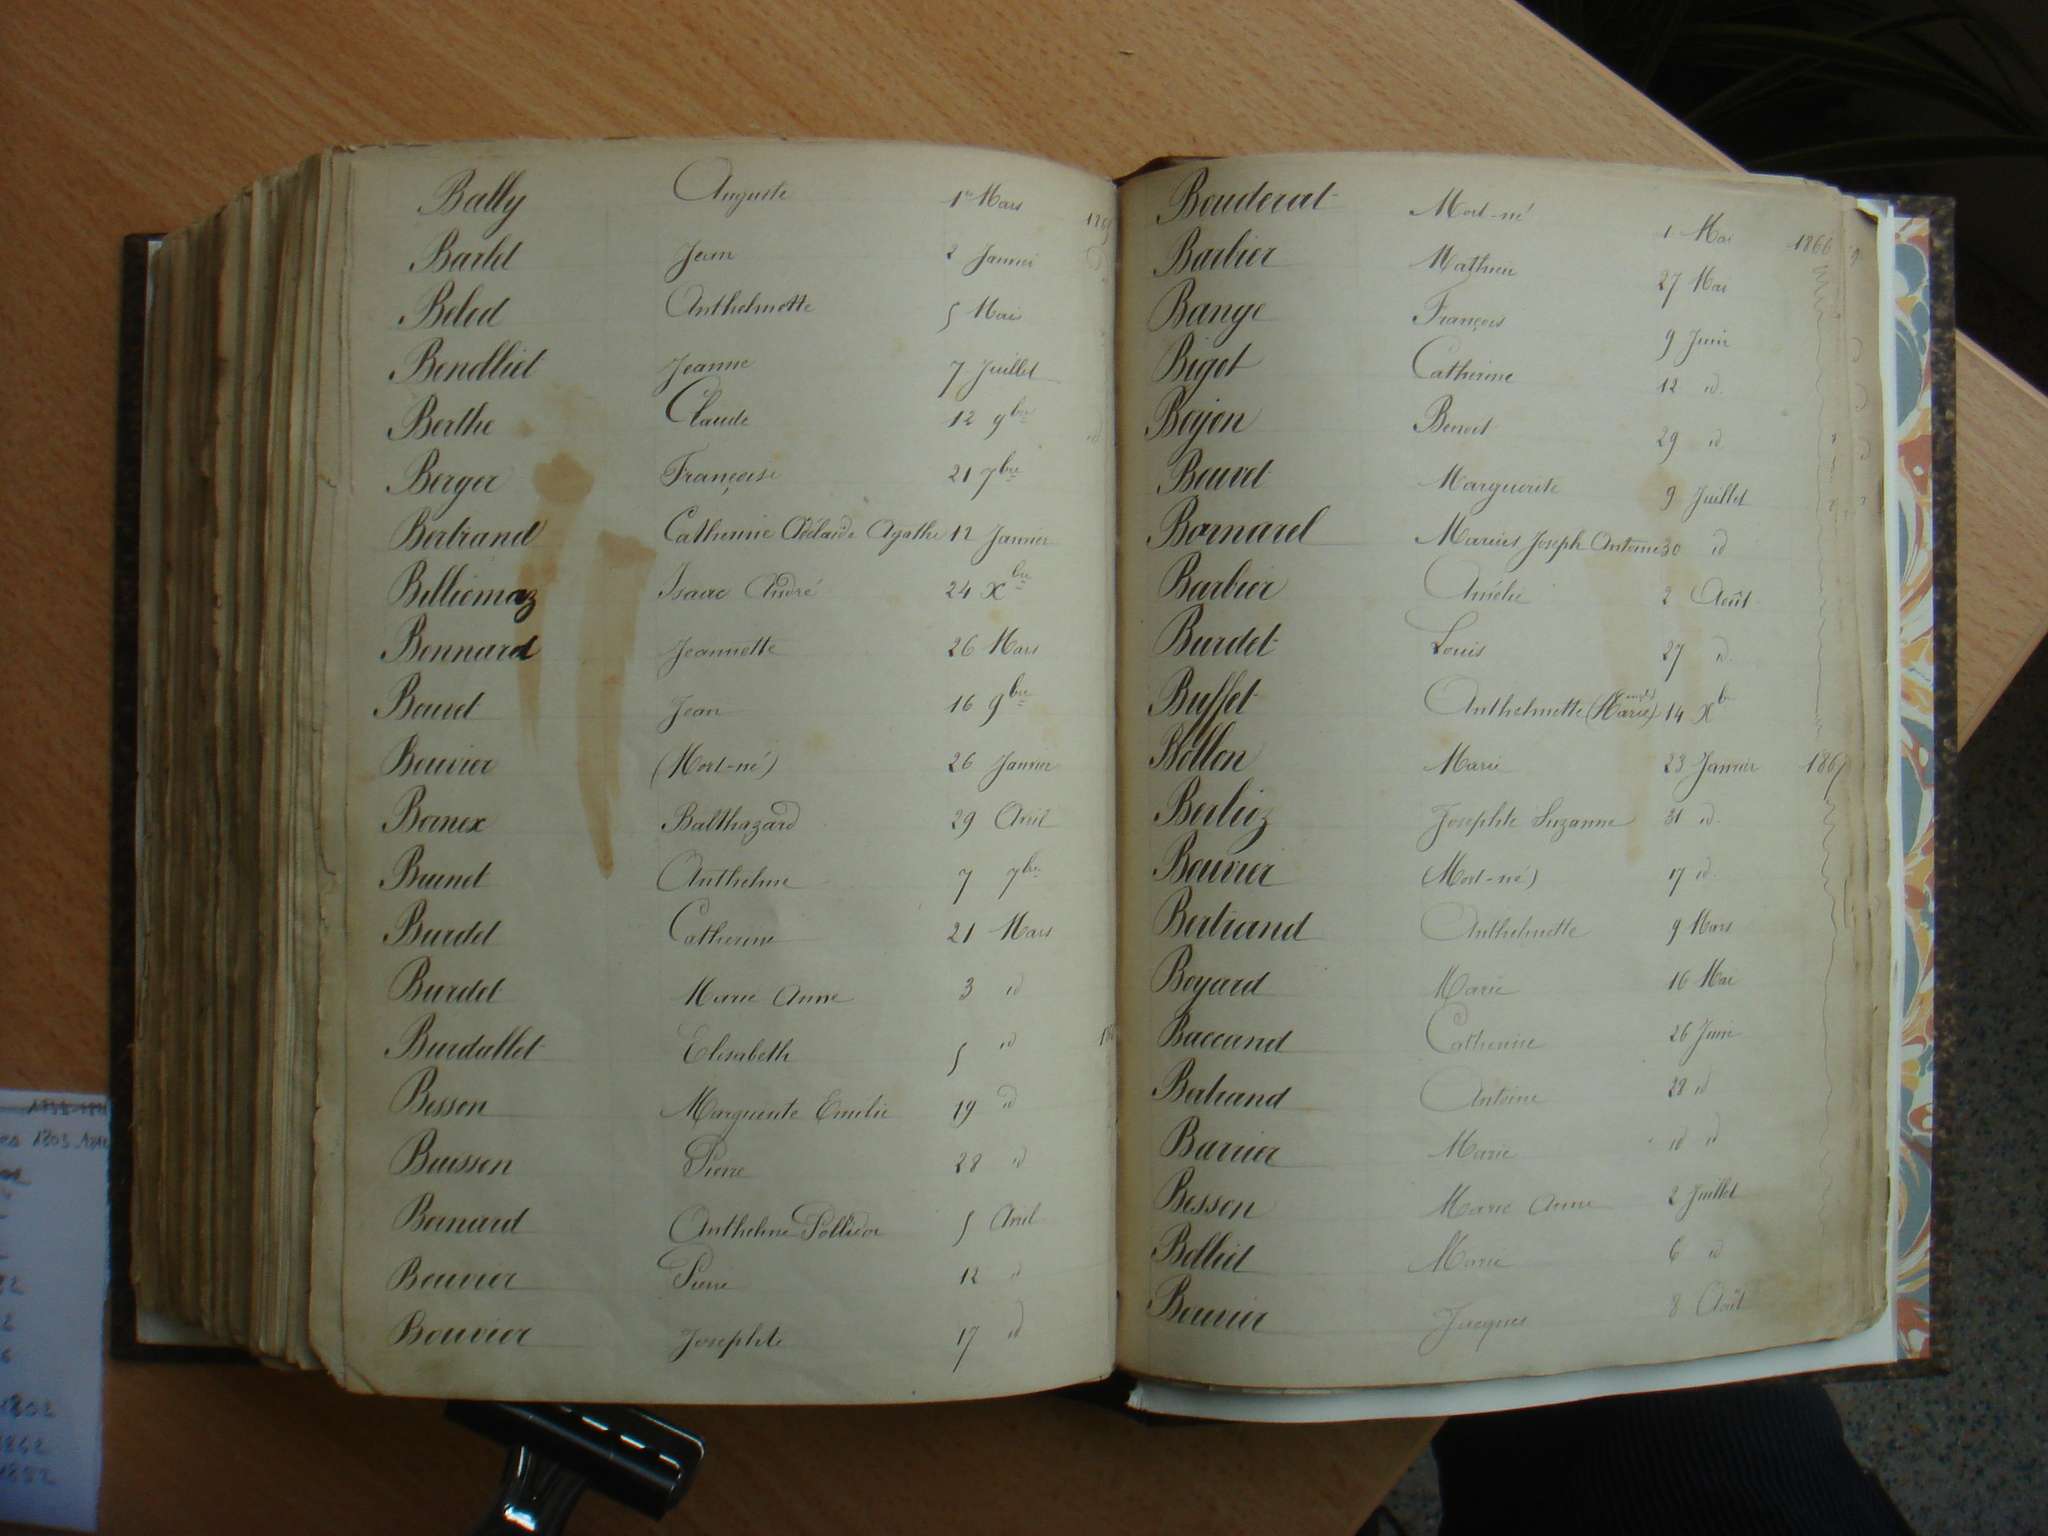 Bally Auguste 1er Mars
Barlet Jean 2 Janvier
Belod Anthelmette 5 Mars
Bendlliet Jeanne 7 Juillet
Berthe Claude 12 9bre
Berger Françoise 21 7bre
Bertrand Catherine Adélaïde Agathe 12 Janvier
Billiemaz Isaac André 24 Xbre
Bonnard Jeannette 26 Mars
Bouvet Jean 16 9bre
Bouvier (Mort-né) 26 Janvier
Bonex Balthazard 29 Avril
Brunet Anthelme 7 7bre
Burdet Catherine 21 Mars
Burdet Marie Anne 3 id
Burdallet Elisabeth 5 id
Besson Marguerite Emélie 19 id
Buisson Pierre 28 id
Bornard Anthelme 5 Avril
Bouvier Pierre 12 id
Bouvier Josephte 17 id
Bouderat Mort-né 1 Mai 1866
Barbier Mathieu 27 Mai
Bange François 9 Juin
Bigot Catherine 12 id.
Bojon Benoit 29 id
Bouvet Marguerite 9 Juillet
Bornarel Marius Joseph Antoine 30 id
Barbier Amélie 2 Août
Burdet Louis 27 id.
Buffet Anthelmette (Marie) 14 Xb
Bollon Marie 23 Janvier 1867
Berlioz Josephte Suzanne 31 id.
Bouvier (Mort-né) 17 id.
Bertrand Anthelmette 9 Mars
Boyard Marie 16 Mai
Baccand Catherine 26 Juin
Bertrand Antoine 28 id
Barrier Marie id id
Besson Marie Anne 2 Juillet
Bolliet Marie 6 id
Bouvier Jacques 8 Août